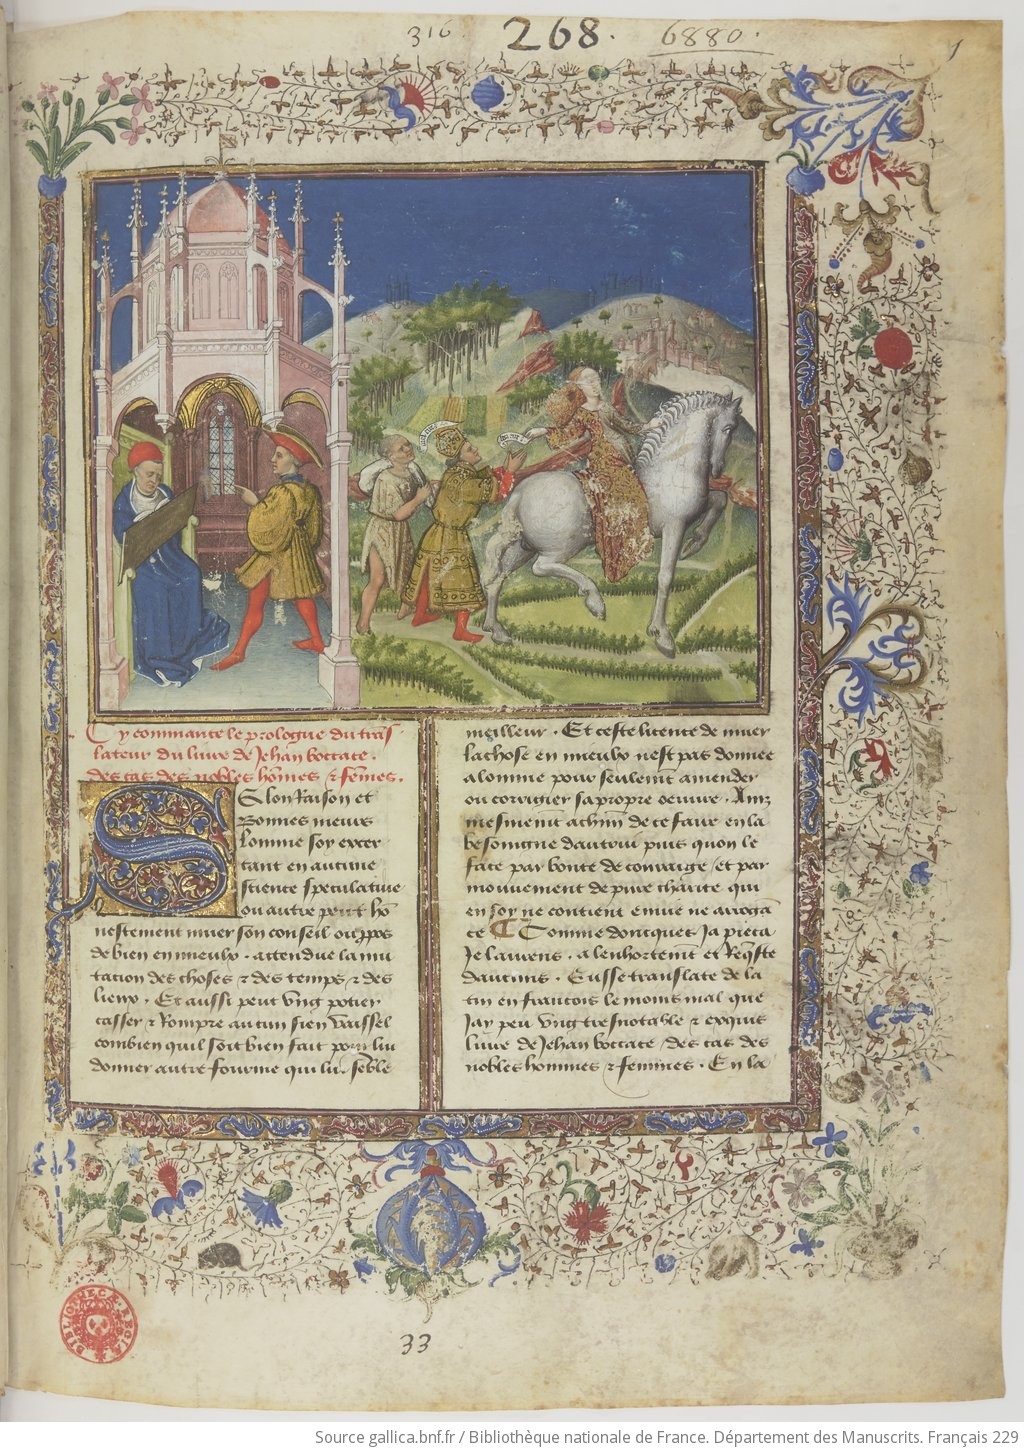 316. 268. 6880.
1
Cy commance le prologue du trās
lateur du liure de Jehan boccace.
des cas des nobles hōmes ⁊ fēmes.
SElon Raison et
Bonnes meurs
Lomme soy excer
tant en aucune
science speculatiue
ou autre peut hō
nestement muer son conseil ou ꝓpos
de bien en mieulx. attendue la mu
tacion des choses ⁊ des temps ⁊ des
lieux. Et aussi peut vng potier
casser ⁊ Rompre aucun sien vaissel
combien quil soit bien fait pour lui
donner autre fourme qui lui sēble
meilleur. Et ceste licence de muer
la chose en mieulx nest pas donnee
a lomme pour seulemt amender
ou corrigier sa propre oeuure.
mesment achūn de ce faire en la
besoingne dautrui puis quon le
face par bonte de couraige / et par
mouuement de pure charite qui
en soy ne contient enuie ne arrogā
ce ¶ Comme doncques Ja pieca
Je laurens. a lenhortemt et Req̄ste
daucuns. Eusse translate de la
tin en francois le moins mal que
Jay peu vng tresnotable ⁊ exquis
liure de Jehan boccace / des cas des
nobles hommes ⁊ femmes. En la
BIBLIOTHECÆ REGIÆ
33
Source gallica.bnf.fr / Bibliothèque nationale de France. Département des Manuscrits. Français 229